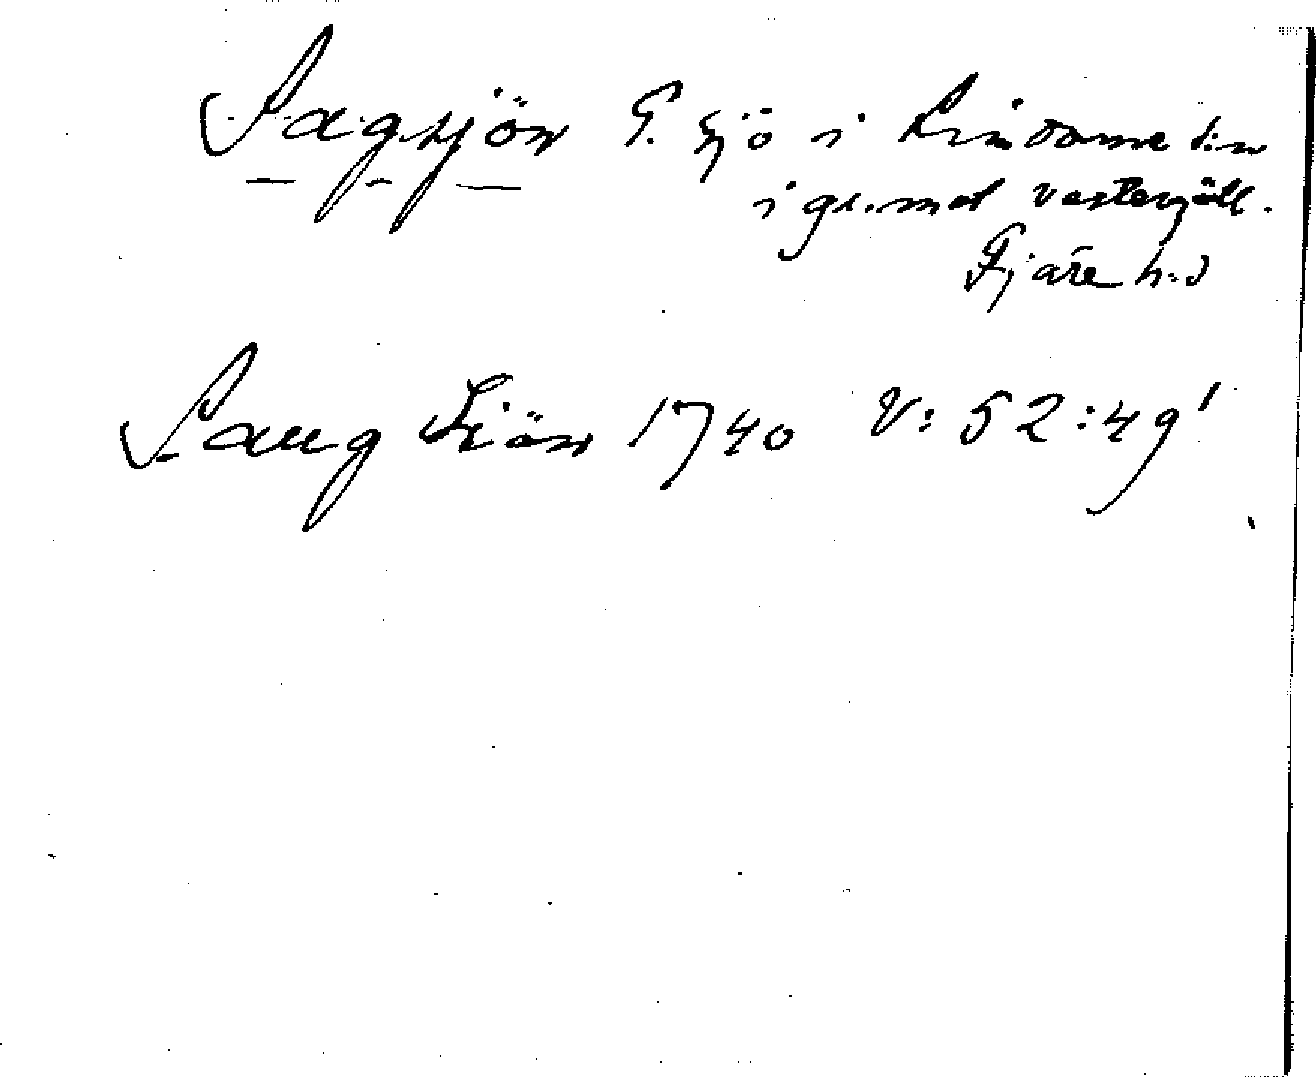 Sagsjön S. sjö i Lindome s:n
i gr. mot Västergötl.
Fjäre h:d
Saug Siön 1740 V: 52:49'